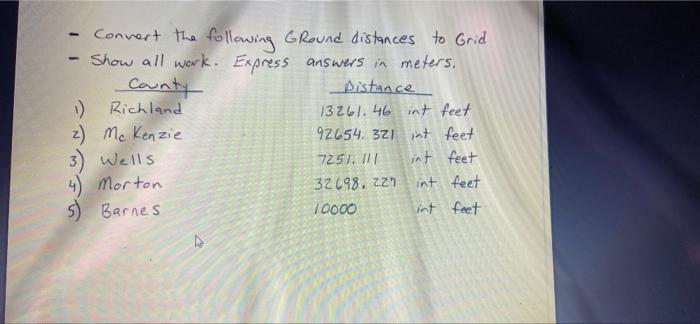 - Convert the following GRound distances to Grid
- Show all work. Express answers in meters.
County Distance
1) Richland 13261.46 int feet
2) Mc Kenzie 92654.321 int feet
3) Wells 7251.111 int feet
4) Morton 32698.227 int feet
5) Barnes 10000 int feet